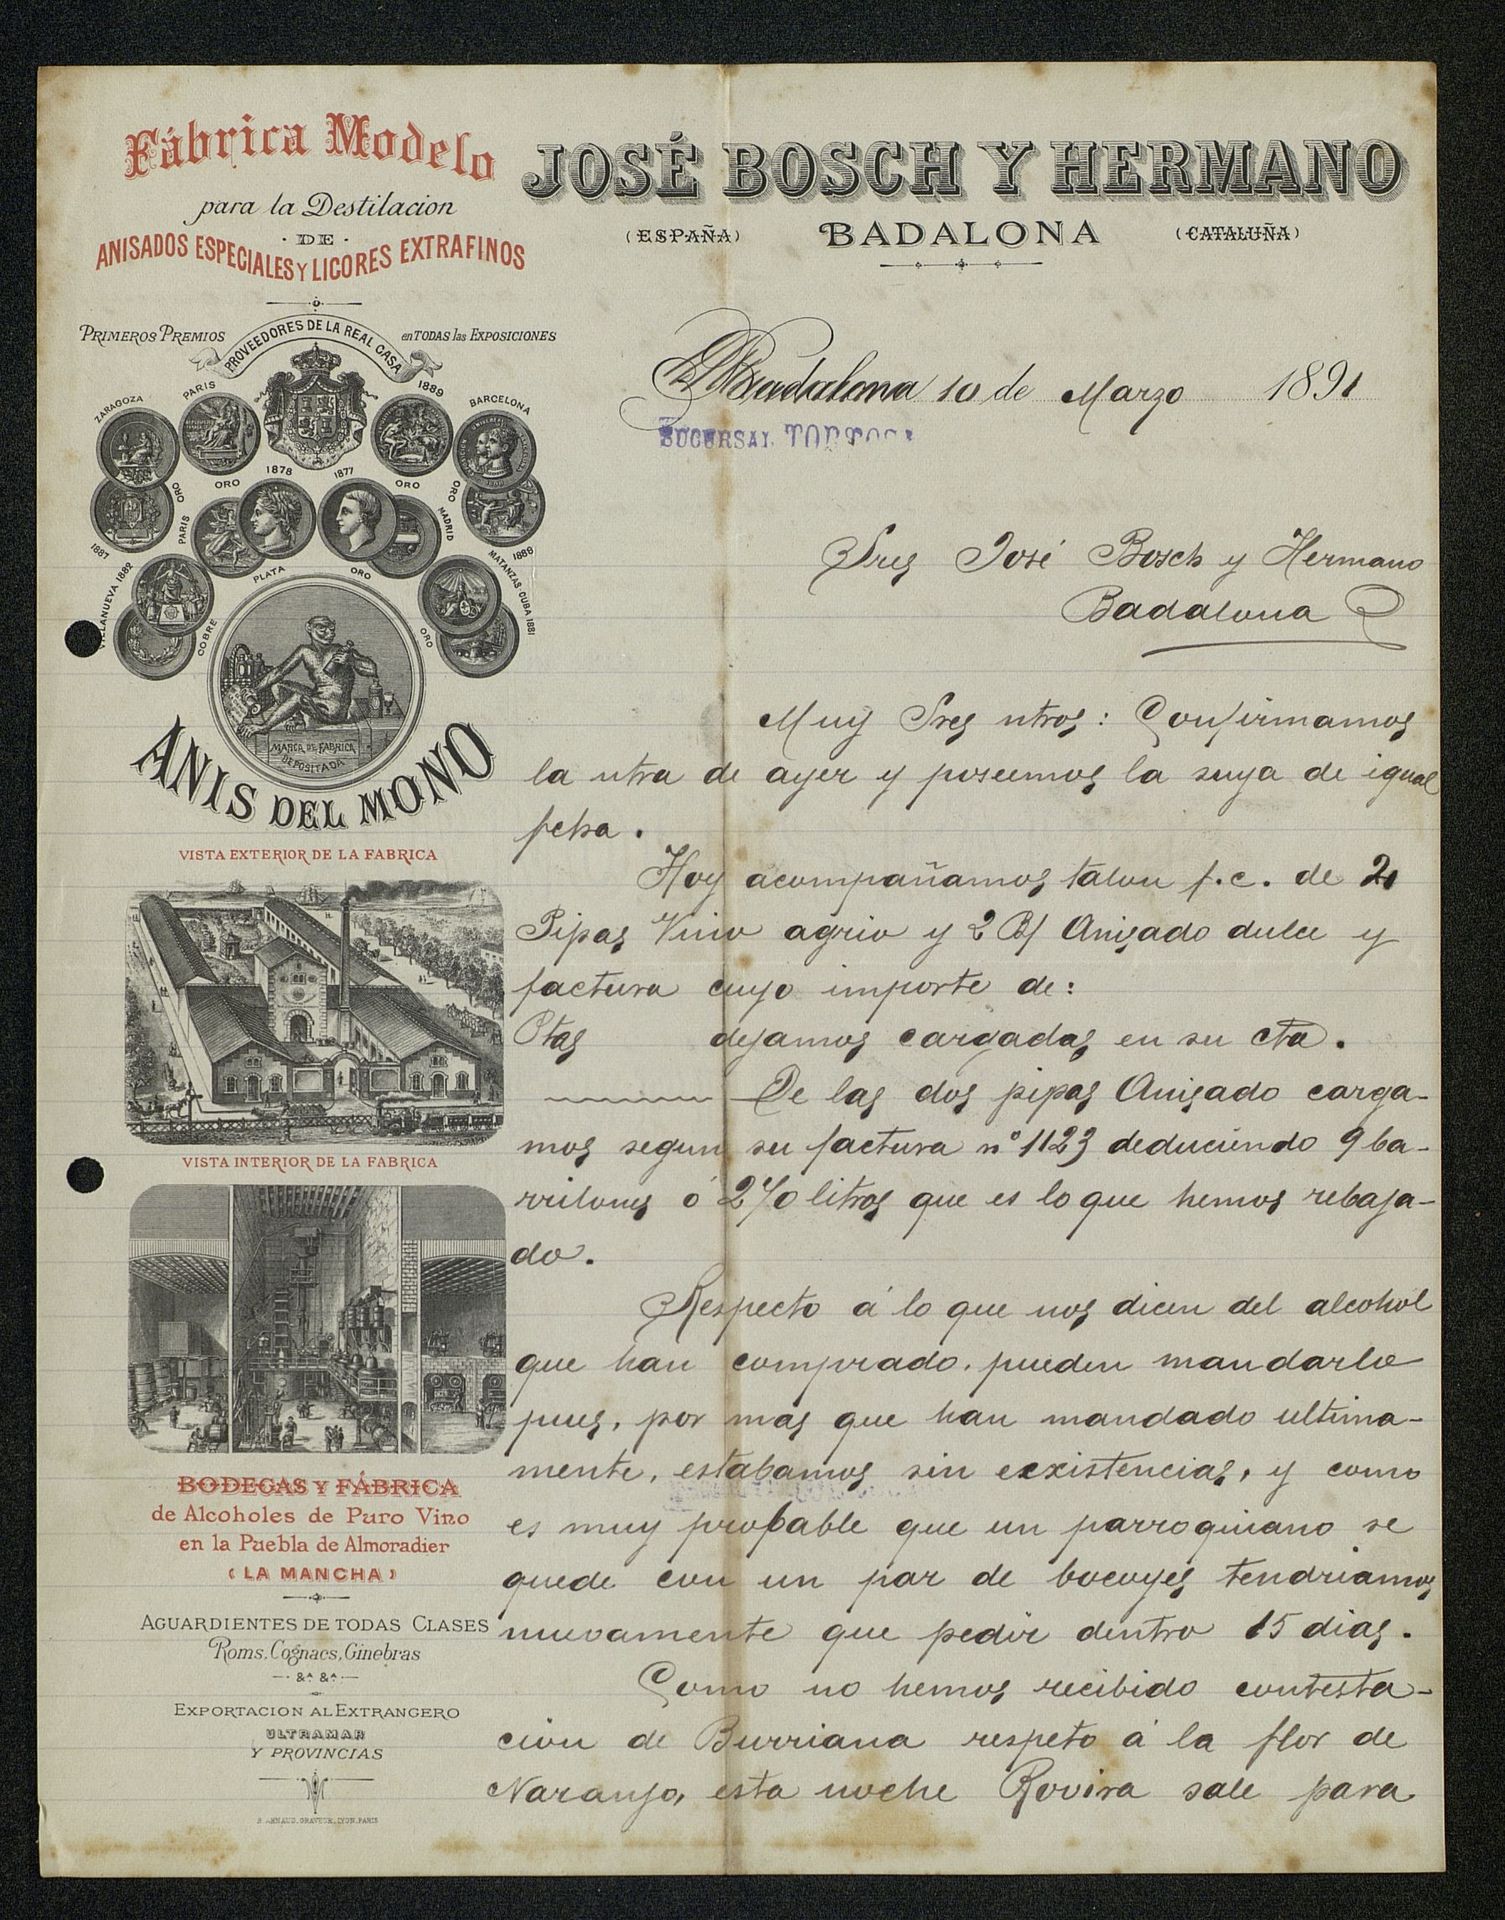 Fábrica Modelo
para la Destilacion
DE
ANISADOS ESPECIALES Y LICORES EXTRAFINOS
PRIMEROS PREMIOS
en TODAS las EXPOSICIONES
PROVEEDORES DE LA REAL CASA
ZARAGOZA
PARIS
1889
BARCELONA
1878
1877
ORO
ORO
ORO
ORO
PARIS
MADRID
1887
1888
PLATA
ORO
VILLANUEVA 1882
MATANZAS-CUBA 1881
COBRE
ORO
MARCA DE FABRICA
DEPOSITADA
ANIS DEL MONO
VISTA EXTERIOR DE LA FABRICA
VISTA INTERIOR DE LA FABRICA
BODEGAS Y FÁBRICA
de Alcoholes de Puro Vino
en la Puebla de Almoradier
(LA MANCHA)
AGUARDIENTES DE TODAS CLASES
Roms, Cognacs, Ginebras
&ª &ª
EXPORTACION AL EXTRANGERO
ULTRAMAR
Y PROVINCIAS
B. ARNAUD, GRAVEUR, LYON, PARIS
JOSÉ BOSCH Y HERMANO
(ESPAÑA) BADALONA (CATALUÑA)
Badalona 10 de Marzo 1891
SUCURSAL TORTOSA
Sres José Bosch y Hermano
Badalona
Muy Sres ntros: Confirmamos
la ntra de ayer y poseemos la suya de igual
fcha.
Hoy acompañamos talon f.c. de 2
Pipas Vino agrio y 2 B/ Anisado dulce y
factura cuyo importe de:
Ptas dejamos cargadas en su cta.
De las dos pipas Anisado carga-
mos segun su factura nº 1123 deduciendo 9 ba-
rrilones ó 270 litros que es lo que hemos rebaja-
do.
Respecto á lo que nos dicen del alcohol
que han comprado, pueden mandarlo
pues, por mas que han mandado ultima-
mente, estabamos sin eexistencias, y como
es muy probable que un parroquiano se
quede con un par de bocoyes tendriamos
nuevamente que pedir dentro 15 dias.
Como no hemos recibido contesta-
ción de Burriana respeto á la flor de
Naranjo, esta noche Rovira sale para